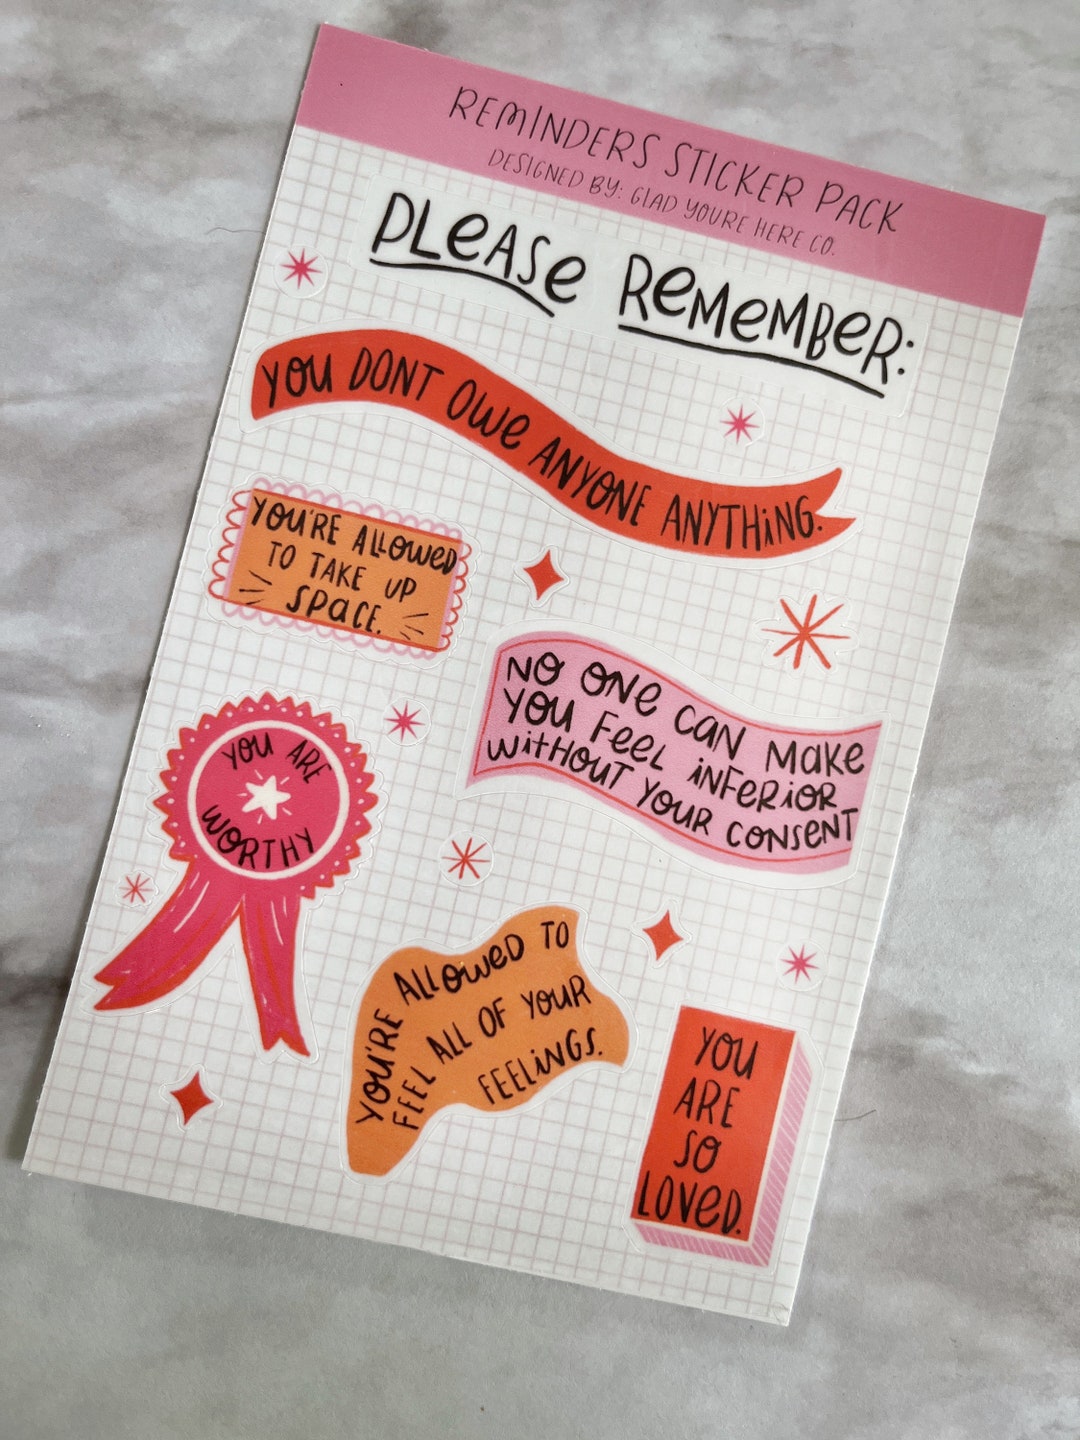 REMINDERS STICKER PACK
DESIGNED BY: GLAD YOURE HERE CO.
PLEASE REMEMBER:
YOU DONT OWE ANYONE ANYTHING.
YOU'RE ALLOWED
TO TAKE UP
SPACE.
NO ONE CAN MAKE
YOU FEEL INFERIOR
WITHOUT YOUR CONSENT
YOU ARE
WORTHY
YOU'RE ALLOWED TO
FEEL ALL OF YOUR
FEELINGS.
YOU
ARE
SO
LOVED.